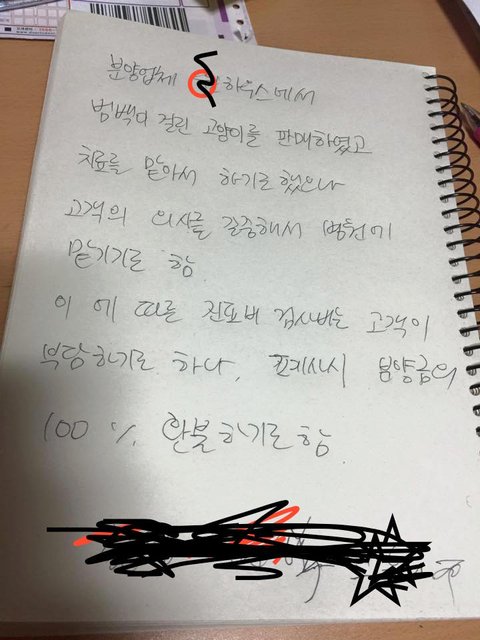 분양업체 하우스에서
범백이 걸린 고양이를 판매하였고
치료를 맡아서 하기로 했으나
고객의 의사를 존중해서 병원에
맡기기로 함
이 에 따른 진료비 검사비는 고객이
부담하기로 하나, 폐사시 분양금의
100 % 환불하기로함